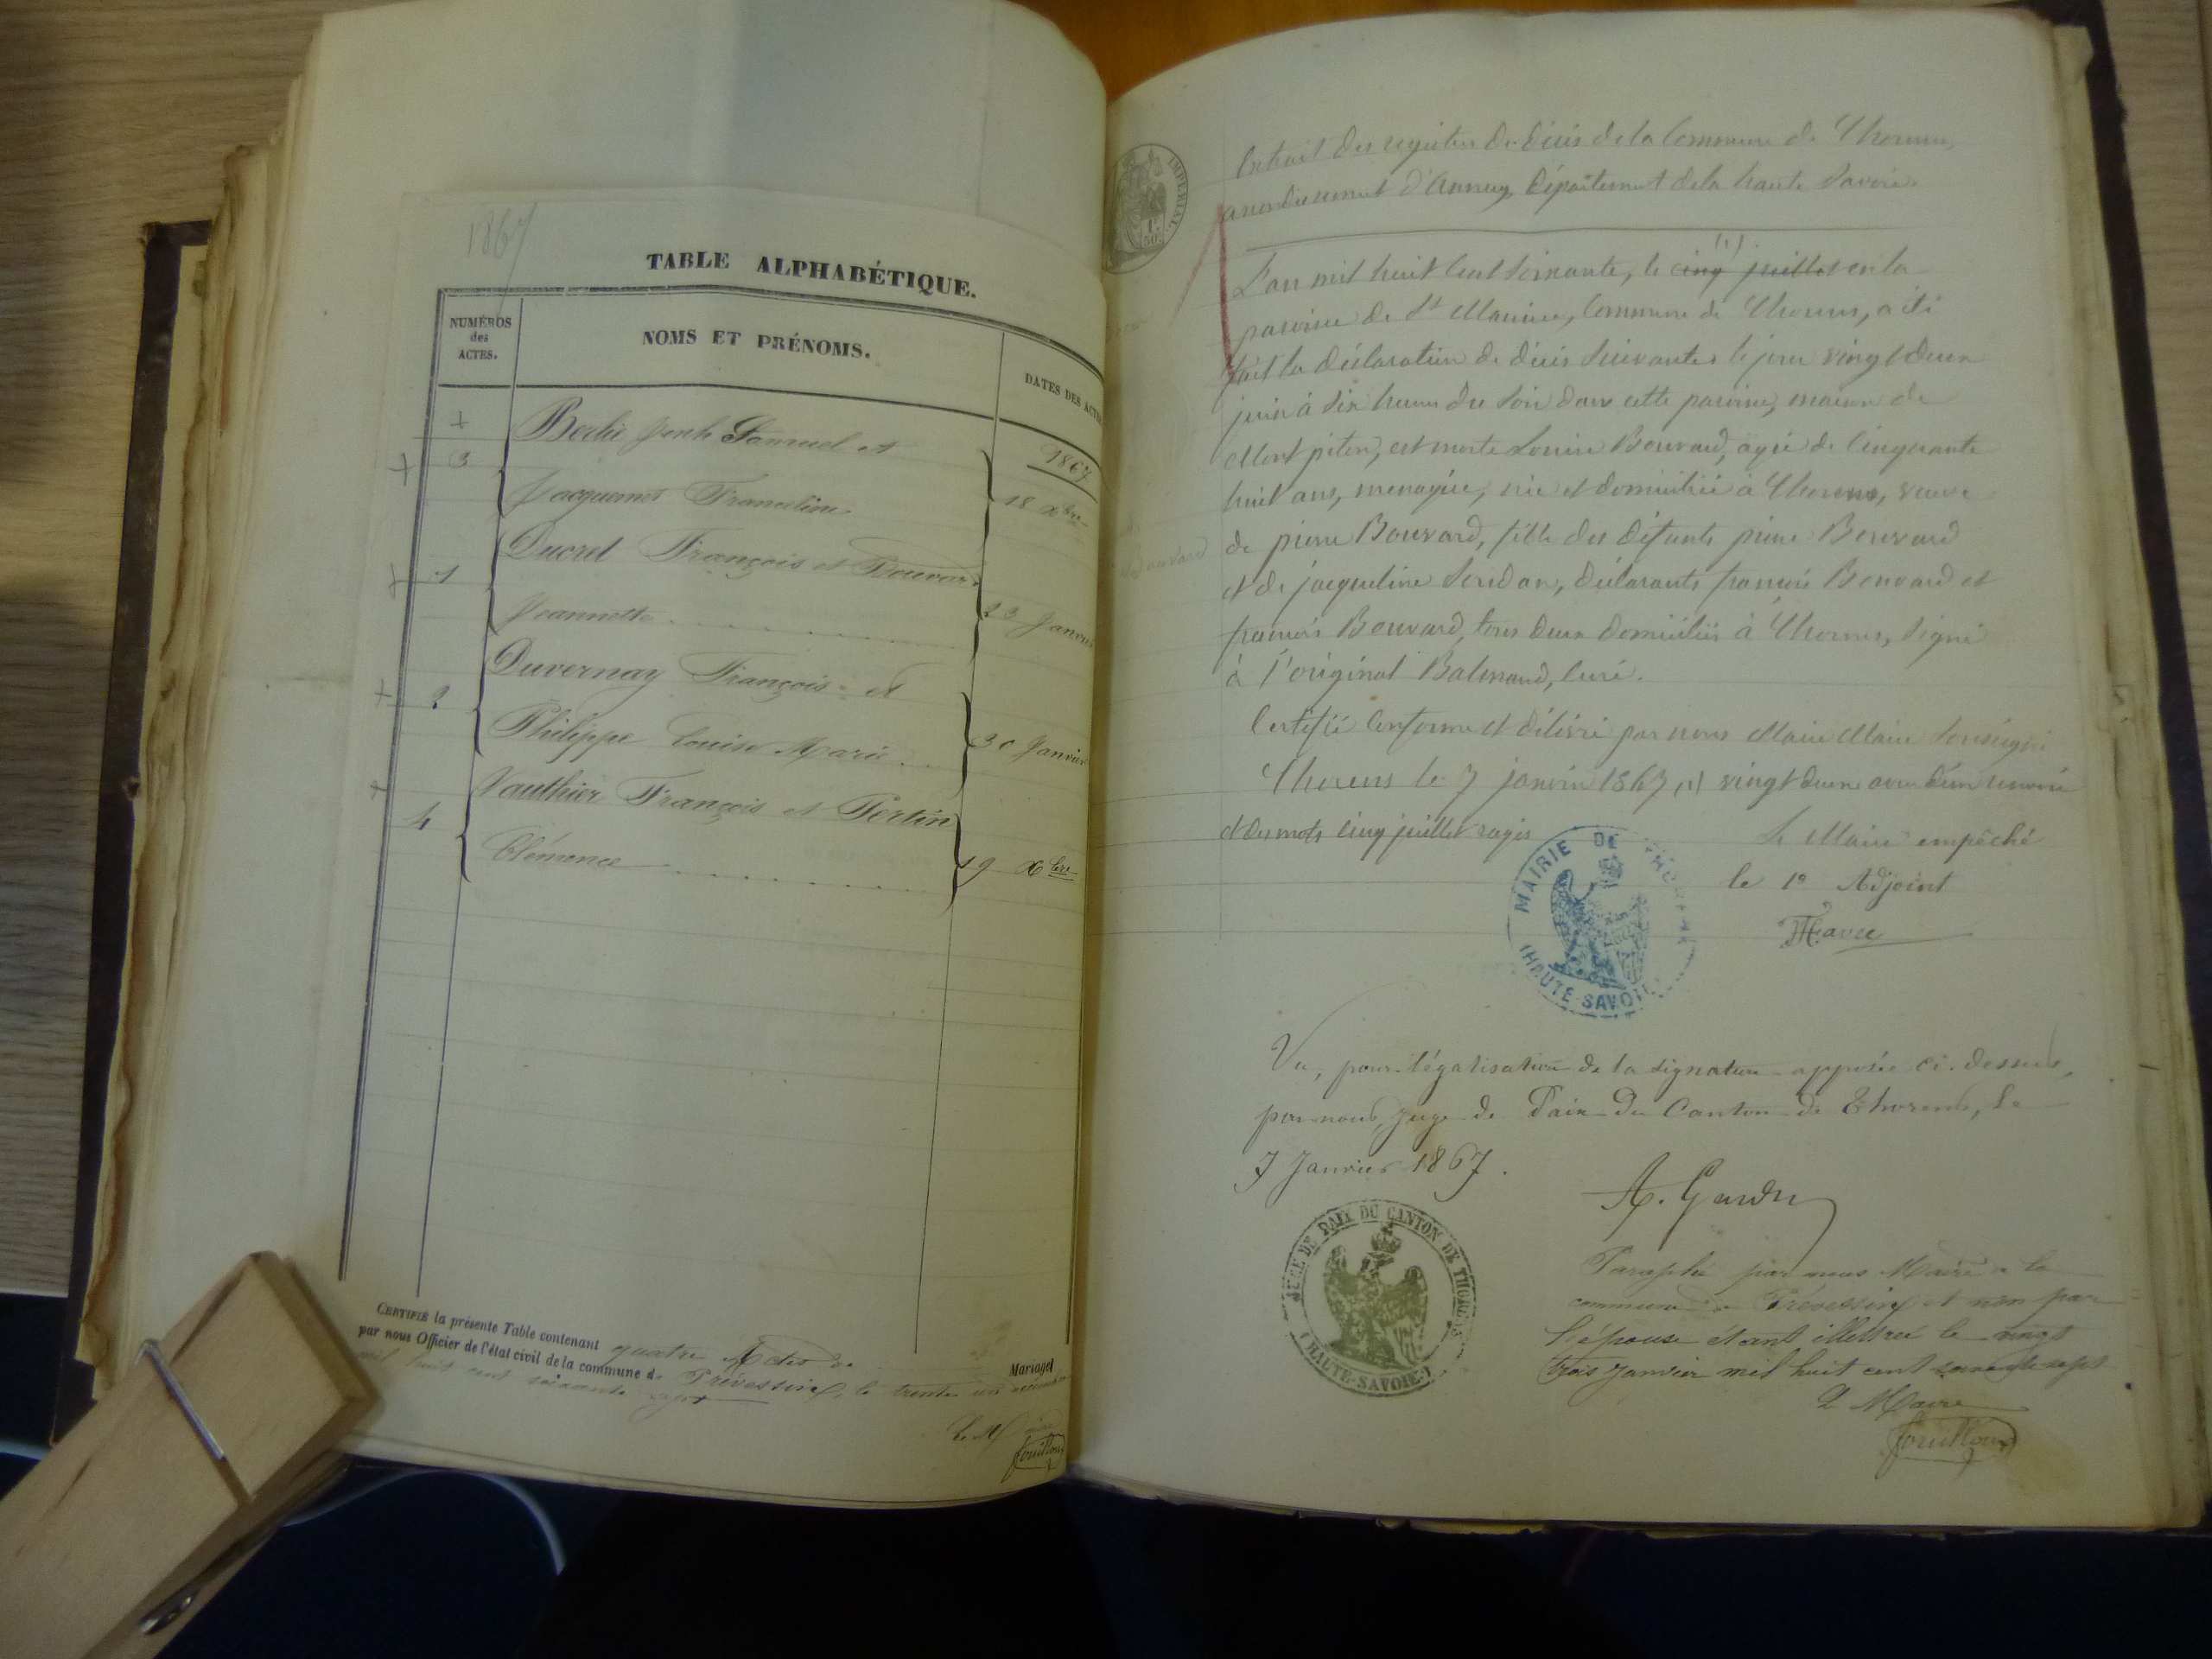 1867
TABLE ALPHABÉTIQUE.
NUMÉROS
des
ACTES.
NOMS ET PRÉNOMS.
DATES DES ACTES
3
Samuel et
1867
Franceline
18 Xbre
Ducret François et Bouvard
1
Jeannette
23 Janvier
Duvernay François et
2
Philippe Louise Marie
30 Janvier
Vauthier François et Fertin
4
Clémence
19 Xbre
CERTIFIÉ la présente Table contenant quatre Actes de Mariages
par nous Officier de l'état civil de la commune de Prévessin, le trente un décembre
mil huit cent soixante sept
Le Maire
Fouilloux
IMPÉRIAL
1F
50C
Extrait des registres de décès de la Commune de Thorens,
arrondissement d'Annecy, Département de la haute Savoie.
L'an mil huit cent soixante, le cinq juillet (1) en la
paroisse de St Maurice, Commune de Thorens, a été
fait la déclaration de décès suivante: le jour vingt deux
juin à six heures du soir dans cette paroisse, maison de
Mont piton, est morte Louise Bouvard, agée de cinquante
huit ans, menagère, née et domiciliée à Thorens, veuve
Bouvard
de pierre Bouvard, fille des défunts pierre Bouvard
et de jacqueline Soudan, déclarants françois Bouvard et
françois Bouvard, tous deux domiciliés à Thorens, signé
à l'original Balmand, curé.
Certifié conforme et délivré par nous Maire Maire soussigné
Thorens le 7 janvier 1867 (1) vingt deux
et des mots cinq juillet rayés
Le Maire empêché
le 1er Adjoint
MAIRIE DE THORENS
(HAUTE-SAVOIE)
Vu, pour légalisation de la signature apposée ci-dessus,
par nous, Juge de Paix du Canton de Thorens, le
7 Janvier 1867.
JUGE DE PAIX DU CANTON DE THORENS
(HAUTE-SAVOIE)
Paraphé par nous Maire de la
commune de Prévessin et non par
l'épouse étant illettrée le vingt
trois janvier mil huit cent soixante sept
Le Maire
Fouilloux